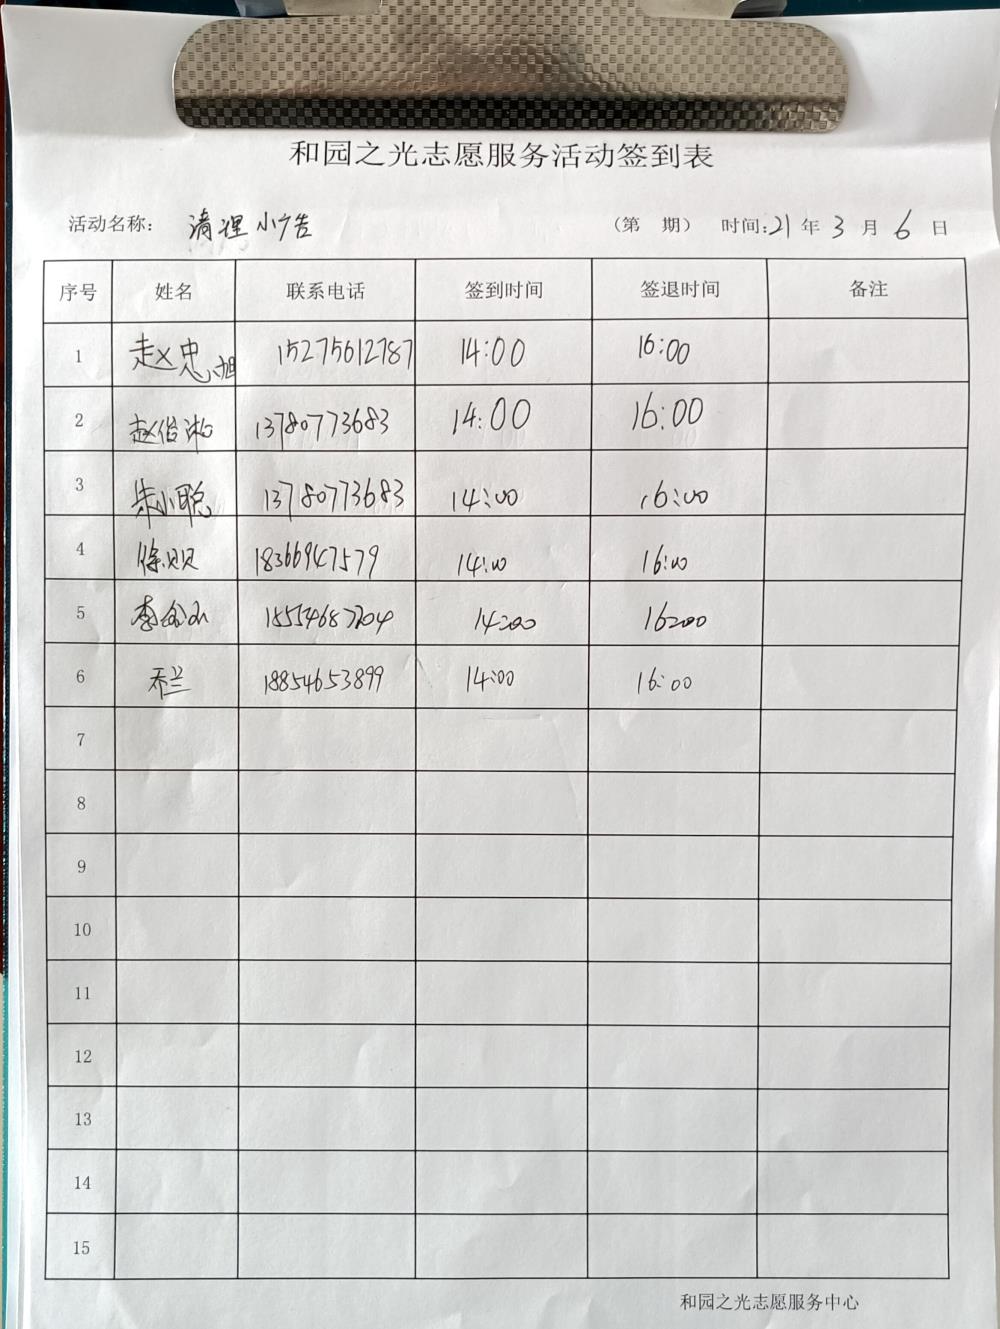 和园之光志愿服务活动签到表
活动名称: 清理小广告 (第 期) 时间:21年3月6日
序号 姓名 联系电话 签到时间 签退时间 备注
1 赵忠旭 15275612787 14:00 16:00
2 赵俊 13780773683 14:00 16:00
3 朱小聪 13780773683 14:00 16:00
4 徐贝贝 18366947579 14:00 16:00
5 李 18554687204 14:00 16:00
6 乔兰 18854653899 14:00 16:00
7
8
9
10
11
12
13
14
15
和园之光志愿服务中心